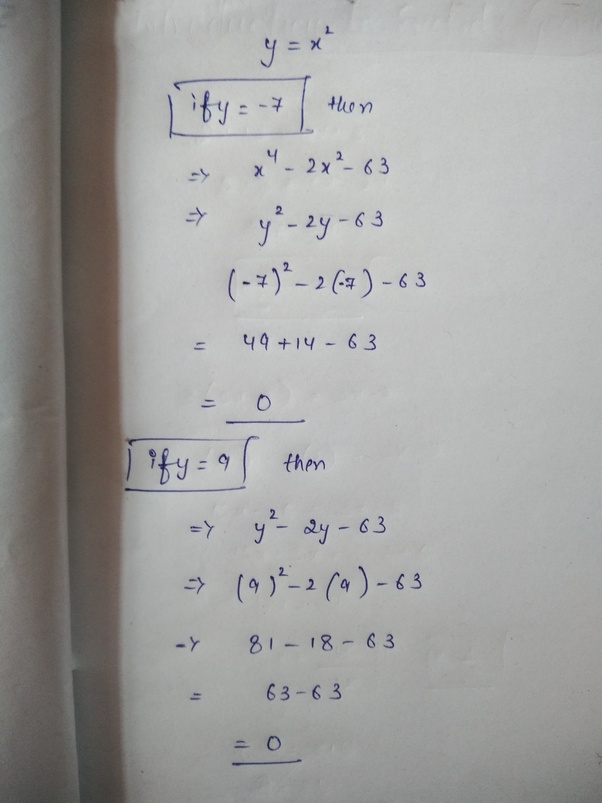 y = x²
if y = -7 then
=> x⁴ - 2x² - 63
=> y² - 2y - 63
(-7)² - 2(-7) - 63
= 49 + 14 - 63
= 0
if y = 9 then
=> y² - 2y - 63
=> (9)² - 2(9) - 63
-> 81 - 18 - 63
= 63 - 63
= 0